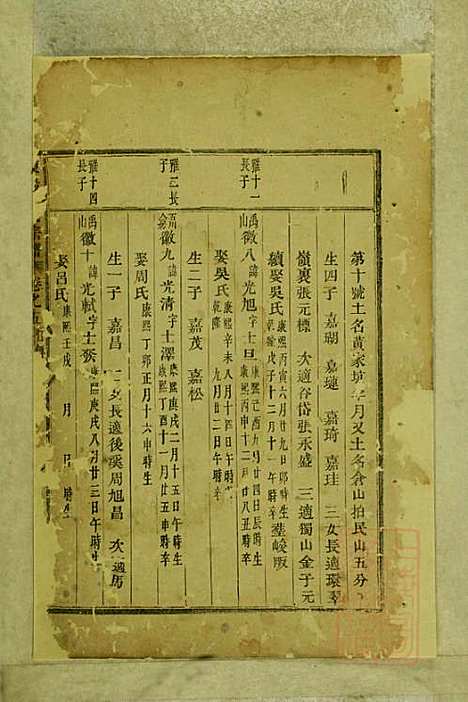 第十號土名黃家塢 月又土名倉山拍民山五分
生四子 嘉瑚 嘉璉 嘉琦 嘉珪 三女長適環翠
嶺裏張元標 次適谷岱張永盛 三適獨山金子元
續娶吳氏康熙丙寅六月廿九日卯時生 乾隆戊子十二月十一午時卒 葬峻阪
雅十一長子
禹山徽八諱光旭字士旦康熙己酉九月廿四日辰時生 十二月廿八丑時卒
娶吳氏康熙辛未八月十四日午時生 乾隆 九月廿二日午時卒
生二子 嘉茂 嘉松
雅三長子
徽九諱光清字士澤康熙庚戌二月十五日午時生 丁酉十一月廿五申時卒
娶周氏康熙丁卯正月十六申時生
生一子 嘉昌 二女長適後溪周旭昌 次適馬
雅十四長子
禹山徽十諱光軾字士 康熙庚戌八月廿三日午時生
娶呂氏康熙壬戌 月 日 時生